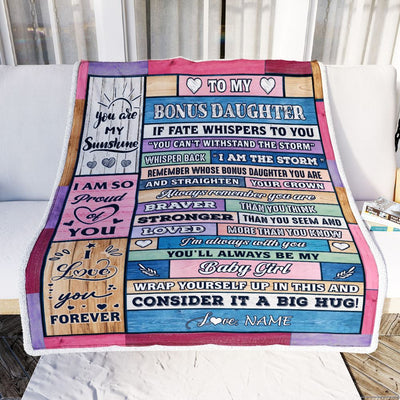 You are
MY
Sunshine
I AM SO
Proud
of
YOU
I
Love
you
FOREVER
TO MY
BONUS DAUGHTER
IF FATE WHISPERS TO YOU
"YOU CAN'T WITHSTAND THE STORM"
WHISPER BACK "I AM THE STORM"
REMEMBER WHOSE BONUS DAUGHTER YOU ARE
AND STRAIGHTEN YOUR CROWN
Always remember you are
BRAVER THAN YOU THINK
STRONGER THAN YOU SEEM AND
LOVED MORE THAN YOU KNOW
I'm always with you
YOU'LL ALWAYS BE MY
Baby Girl
WRAP YOURSELF UP IN THIS AND
CONSIDER IT A BIG HUG!
Love, NAME